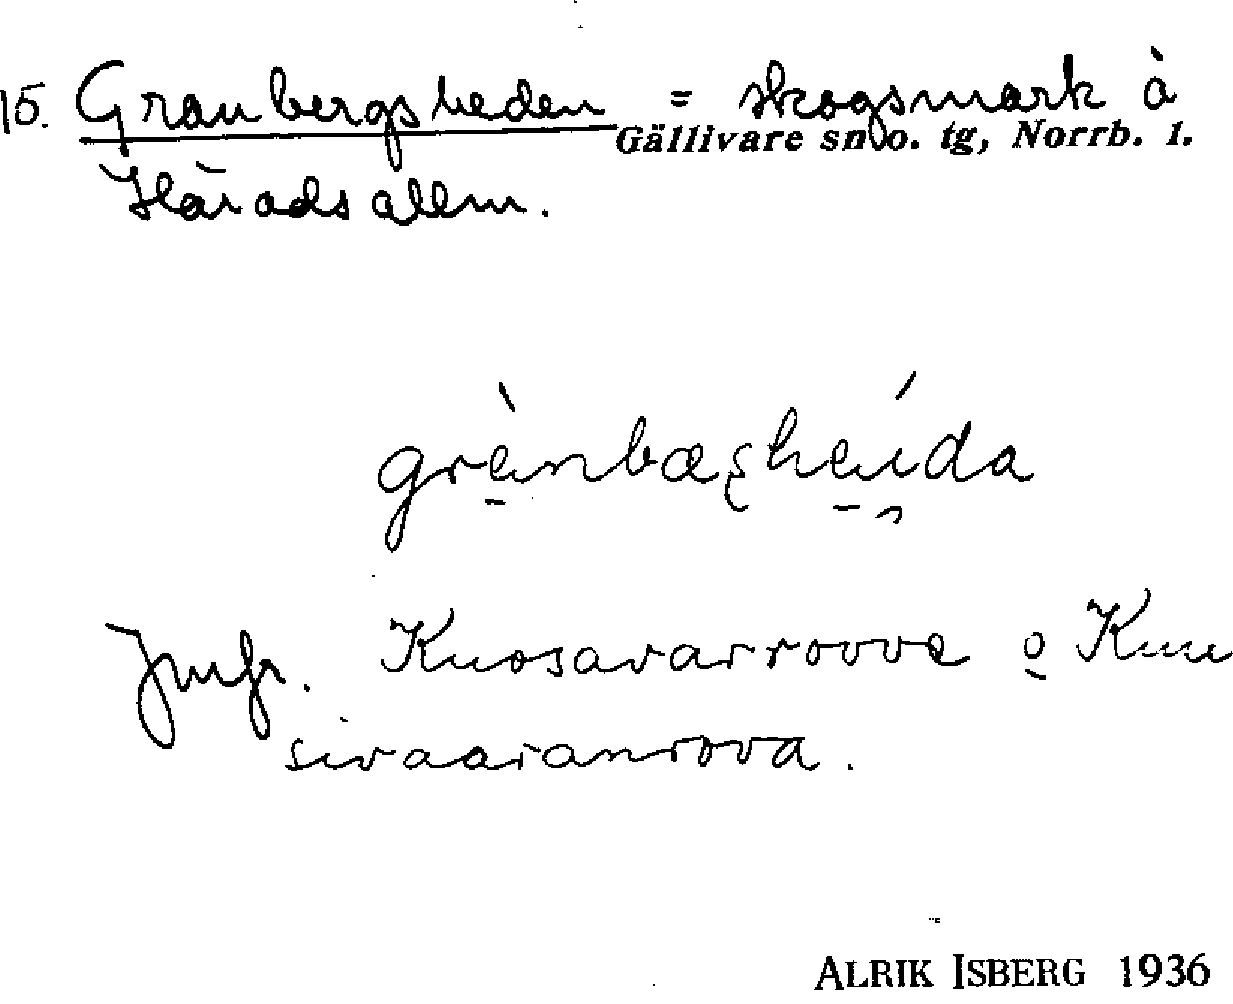 15. Granbergsheden = skogsmark å
Gällivare sn o. tg, Norrb. l.
Häradsallm.
grànbæʂhéida
Jmfr. Kuosavarrovve o Kuu
sivaaranrova.
ALRIK ISBERG 1936